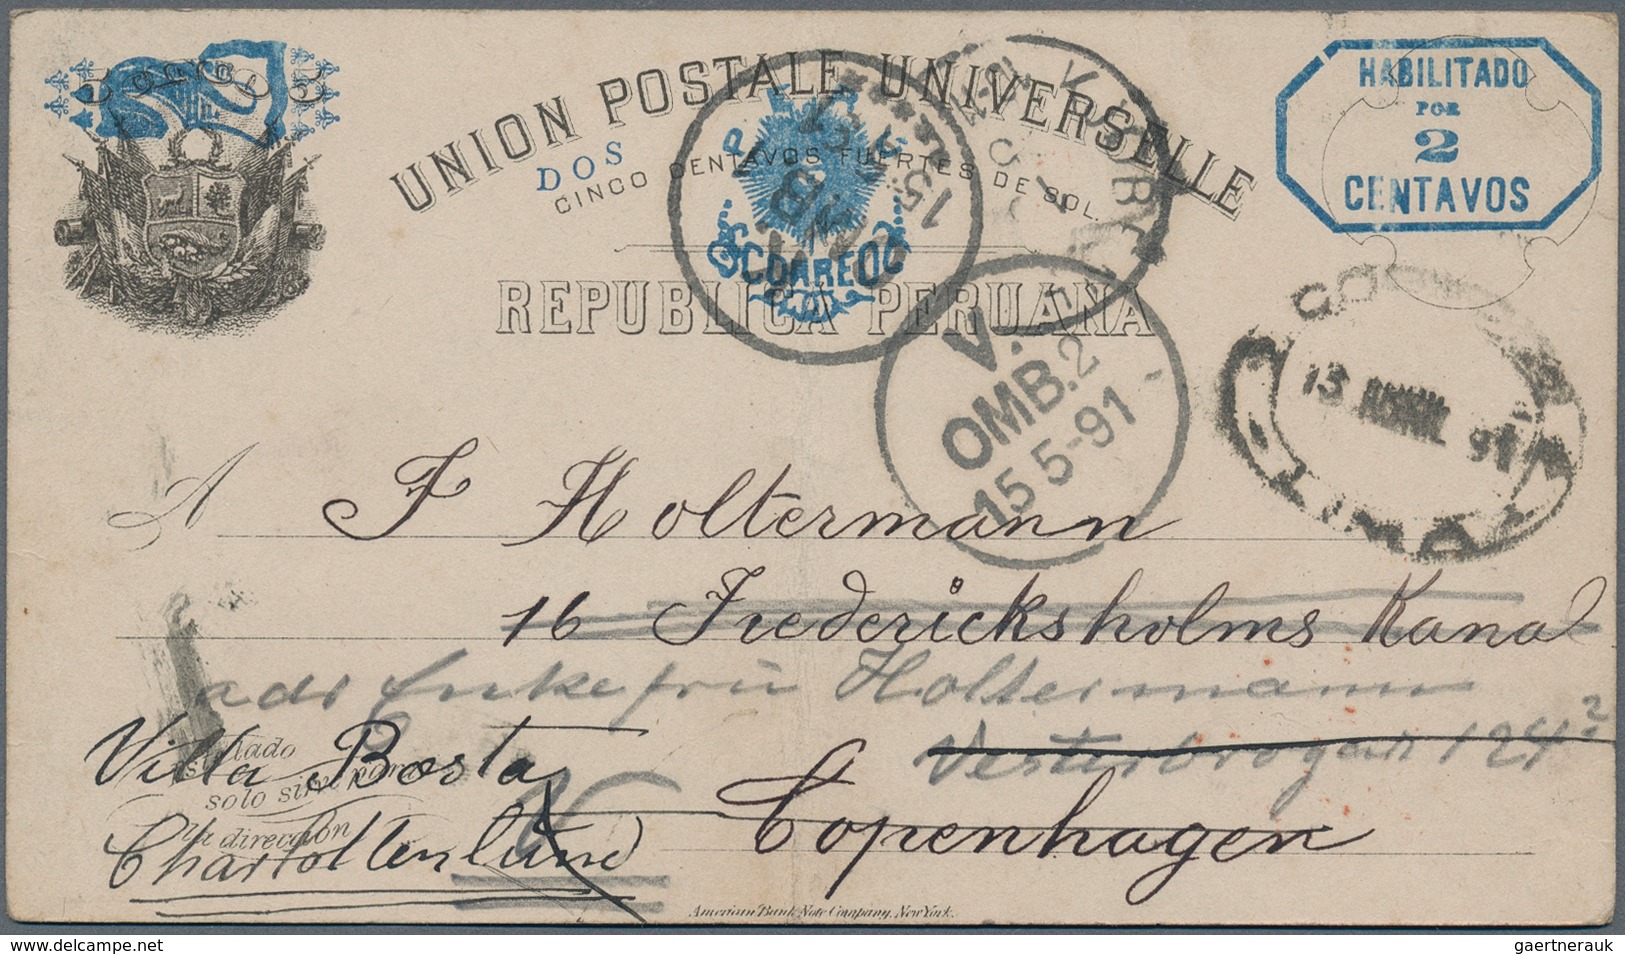 UNION POSTALE UNIVERSELLE
HABILITADO
POR
2
CENTAVOS
DOS
CINCO CENTAVOS FUERTES DE SOL.
CORREOS
REPUBLICA PERUANA
V.
OMB.2
15 5-91
13 ABRIL 91
LIMA
A F Holtermann
16 Fredericksholms Kanal
adr Enkefru Holtermann
Vesterbrogade 124 2
Villa Bæsta
Copenhagen
solo sirve para
la dirección
Charlottenlund
American Bank Note Company, New York.
delcampe.net
gaertnerauk